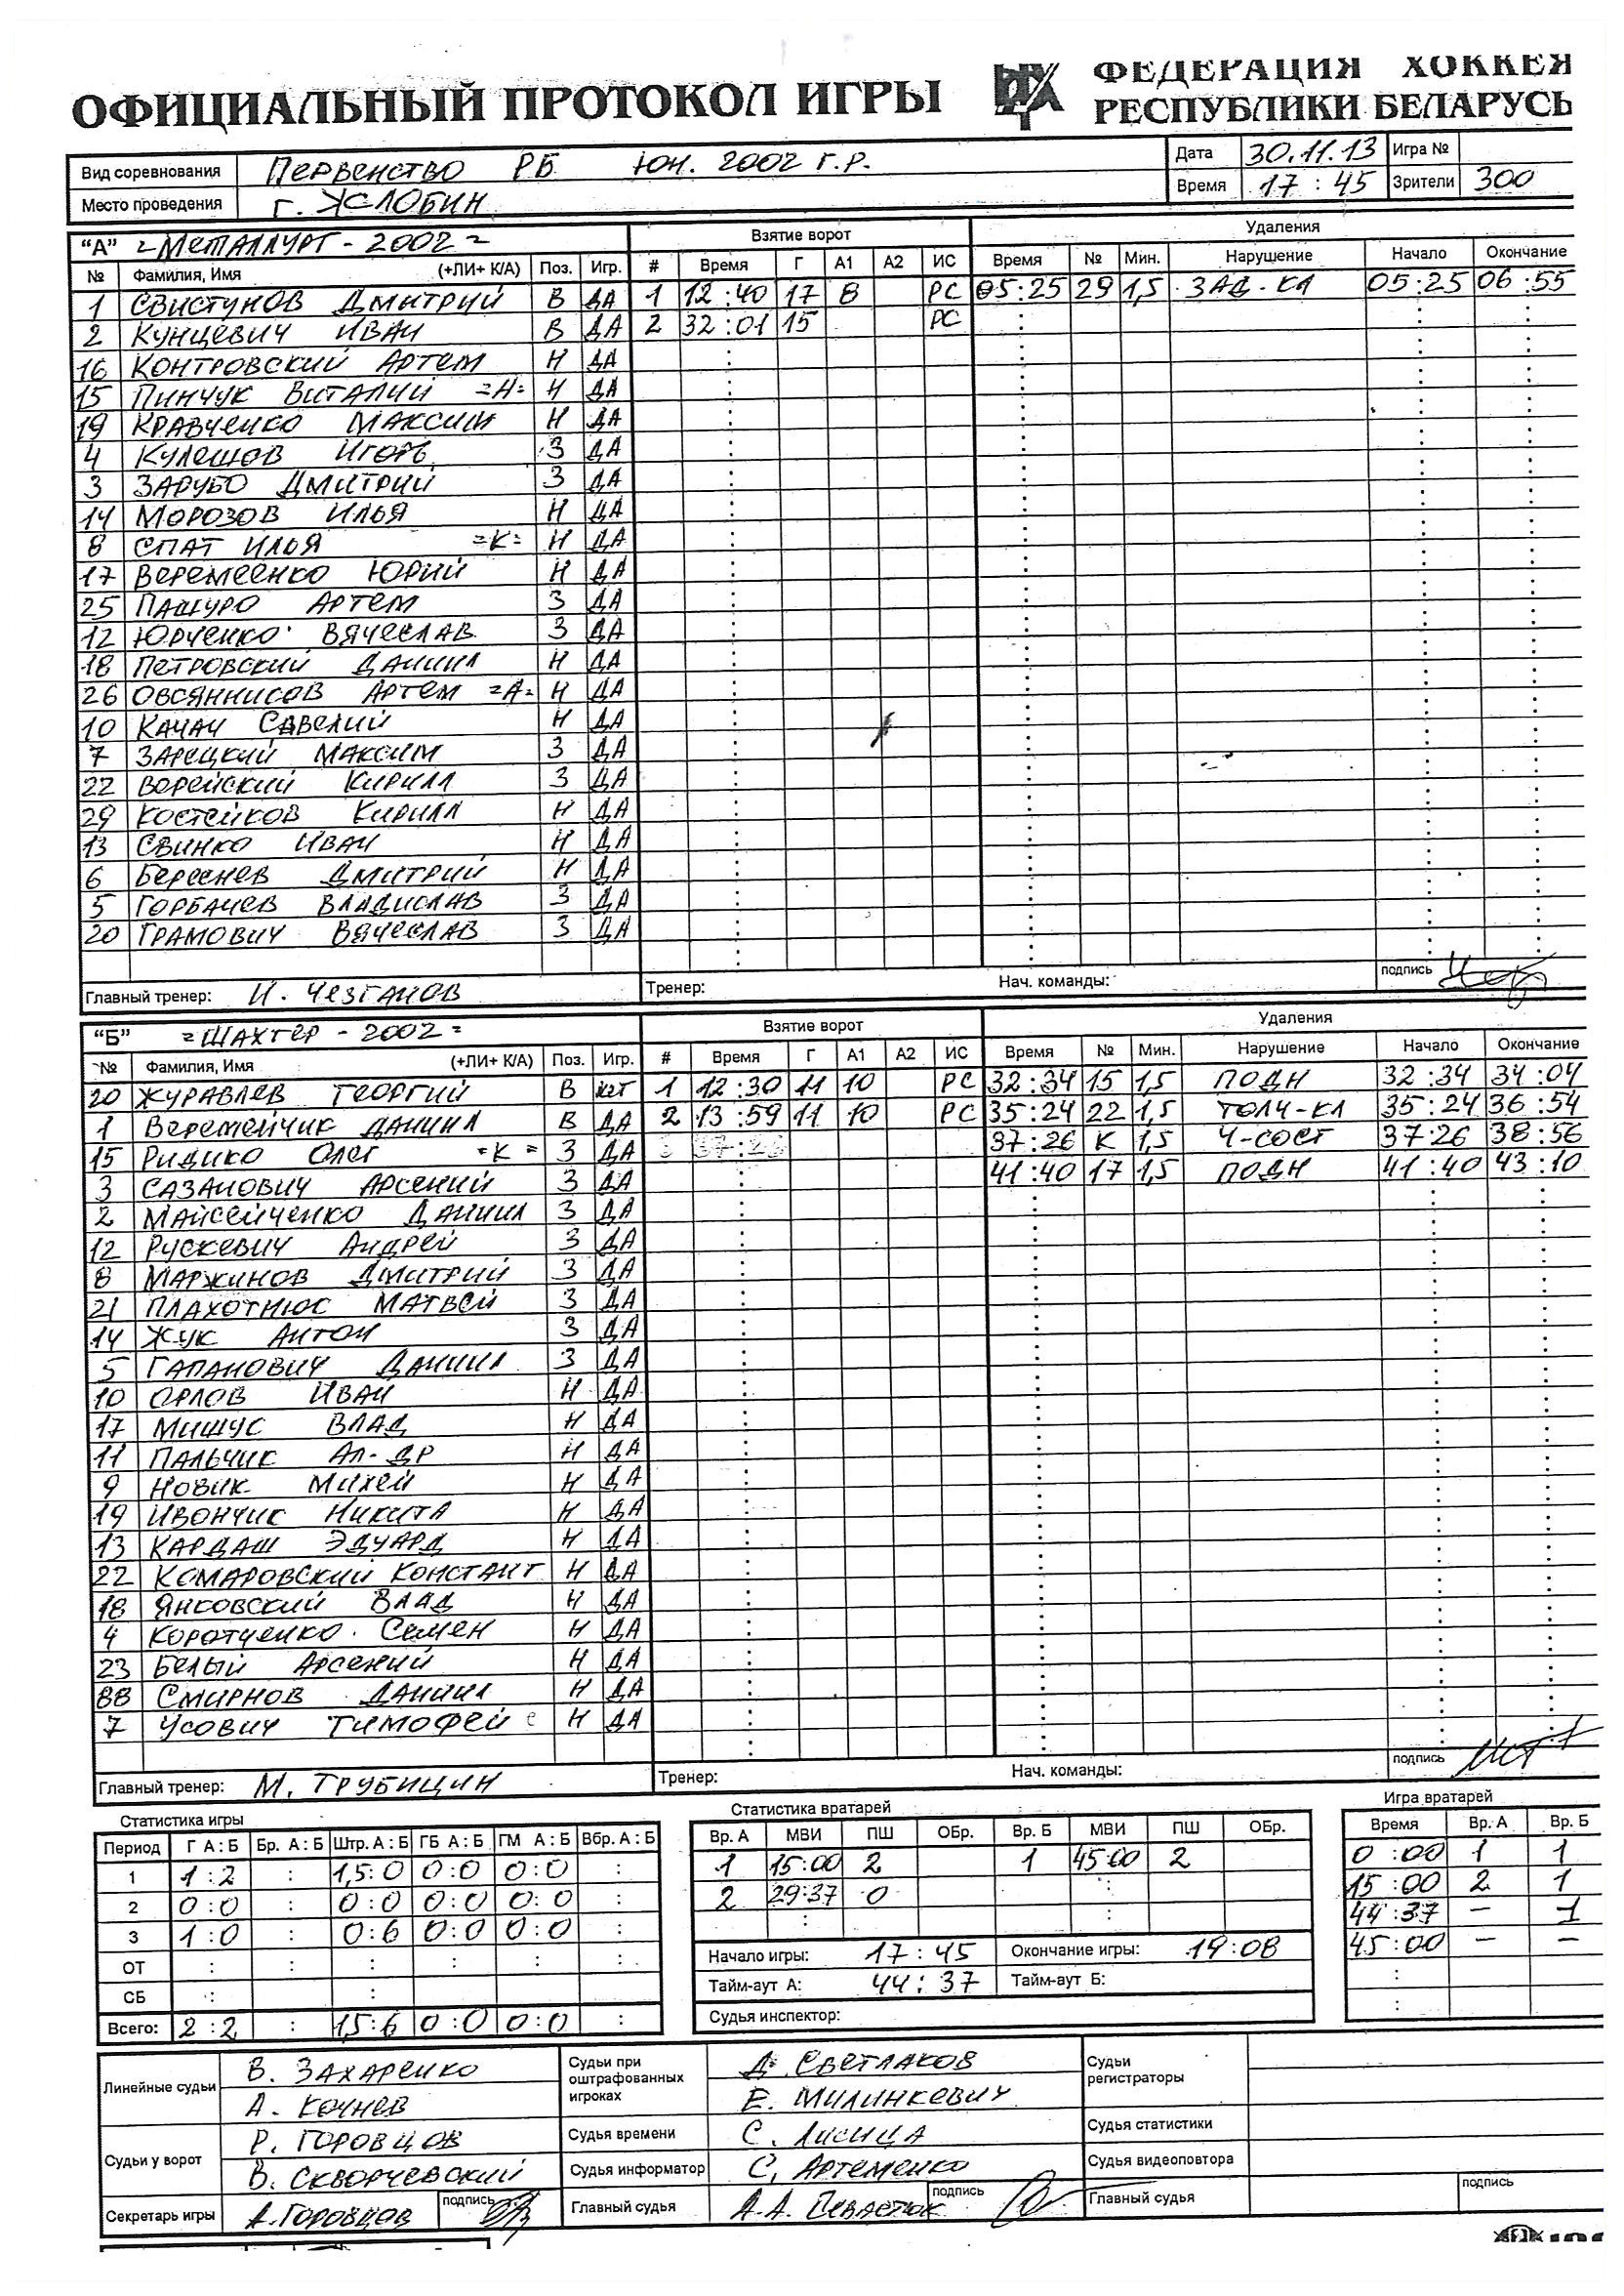 ОФИЦИАЛЬНЫЙ ПРОТОКОЛ ИГРЫ ФЕДЕРАЦИЯ ХОККЕЯ
РЕСПУБЛИКИ БЕЛАРУСЬ
Вид соревнования Первенство РБ юн. 2002 г.р. Дата 30.11.13 Игра №
Место проведения г. Жлобин Время 17:45 Зрители 300
"А" =Металлург-2002= Взятие ворот Удаления
№ Фамилия, Имя (+ЛИ+ К/А) Поз. Игр. # Время Г А1 А2 ИС Время № Мин. Нарушение Начало Окончание
1 Свистунов Дмитрий В ДА 1 12:40 17 8 РС 05:25 29 1,5 ЗАД-КЛ 05:25 06:55
2 Кунцевич Иван В ДА 2 32:01 15 РС
16 Контровский Артем Н ДА
15 Пинчук Виталий =А= Н ДА
19 Кравченко Максим Н ДА
4 Кулешов Игорь З ДА
3 Зарубо Дмитрий З ДА
14 Морозов Илья Н ДА
8 Спат Илья =К= Н ДА
17 Веремеенко Юрий Н ДА
25 Пашуро Артем З ДА
12 Юрченко Вячеслав З ДА
18 Петровский Даниил Н ДА
26 Овсянников Артем =А= Н ДА
10 Качан Савелий Н ДА
7 Зарецкий Максим З ДА
22 Ворейский Кирилл З ДА
29 Костейков Кирилл Н ДА
13 Свинко Иван Н ДА
6 Береснев Дмитрий Н ДА
5 Горбачев Владислав З ДА
20 Грамович Вячеслав З ДА
Главный тренер: И. Чезганов Тренер: Нач. команды: подпись
"Б" =Шахтер-2002= Взятие ворот Удаления
№ Фамилия, Имя (+ЛИ+ К/А) Поз. Игр. # Время Г А1 А2 ИС Время № Мин. Нарушение Начало Окончание
20 Журавлев Георгий В нет 1 12:30 11 10 РС 32:34 15 1,5 ПОДН 32:34 34:04
1 Веремейчик Даниил В ДА 2 13:59 11 10 РС 35:24 22 1,5 ТОЛЧ-КЛ 35:24 36:54
15 Ридико Олег =К= З ДА 37:26 К 1,5 Ч-СОСТ 37:26 38:56
3 Сазанович Арсений З ДА 41:40 17 1,5 ПОДН 41:40 43:10
2 Майсейченко Даниил З ДА
12 Рускевич Андрей З ДА
8 Маржинов Дмитрий З ДА
21 Плахотнюс Матвей З ДА
14 Жук Антон З ДА
5 Гапанович Даниил З ДА
10 Орлов Иван Н ДА
17 Мишус Влад Н ДА
11 Пальчик Ал-др Н ДА
9 Новик Михей Н ДА
19 Ивончик Никита Н ДА
13 Кардаш Эдуард Н ДА
22 Комаровский Констант Н ДА
18 Янковский Влад Н ДА
4 Коротченко Семен Н ДА
23 Белый Арсений Н ДА
88 Смирнов Даниил Н ДА
7 Усович Тимофей Н ДА
Главный тренер: М. Трубицин Тренер: Нач. команды: подпись
Статистика игры Статистика вратарей Игра вратарей
Период Г А : Б Бр. А : Б Штр. А : Б ГБ А : Б ГМ А : Б Вбр. А : Б Вр. А МВИ ПШ ОБр. Вр. Б МВИ ПШ ОБр. Время Вр. А Вр. Б
1 1:2 : 1,5:0 0:0 0:0 : 1 15:00 2 1 45:00 2 0:00 1 1
2 0:0 : 0:0 0:0 0:0 : 2 29:37 0 : 15:00 2 1
3 1:0 : 0:6 0:0 0:0 : : : 44:37 – 1
ОТ : : : : : : Начало игры: 17:45 Окончание игры: 19:08 45:00 – –
СБ : : Тайм-аут А: 44:37 Тайм-аут Б: :
Всего: 2:2 : 1,5:6 0:0 0:0 : Судья инспектор: :
Линейные судьи В. Захаренко Судьи при оштрафованных игроках Д. Светлаков Судьи регистраторы
А. Кочнев Е. Милинкевич
Судьи у ворот Р. Горовцов Судья времени С. Лисица Судья статистики
В. Скворчевский Судья информатор С. Артеменко Судья видеоповтора
Секретарь игры А. Горовцов подпись Главный судья А.А. Певастюк подпись Главный судья подпись